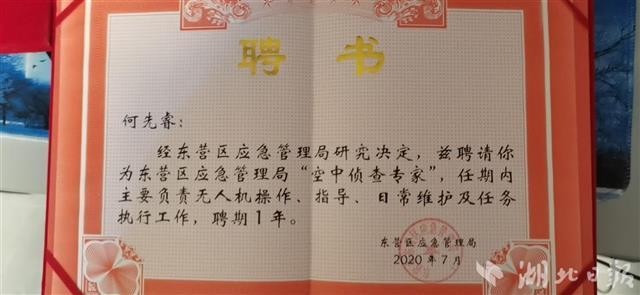 聘 书
何先睿：
经东营区应急管理局研究决定，兹聘请你
为东营区应急管理局“空中侦查专家”，任期内
主要负责无人机操作、指导、日常维护及任务
执行工作，聘期1年。
东营区应急管理局
2020年7月
湖北日报